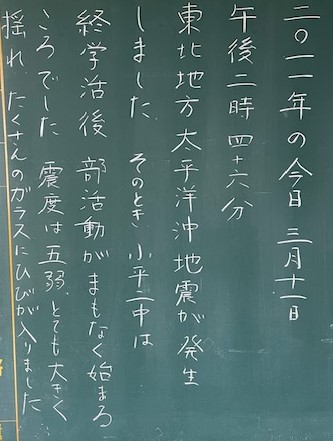 二〇一一年の今日 三月十一日
午後二時四十六分
東北地方太平洋沖地震が発生
しました そのとき 小平二中は
終学活後 部活動がまもなく始まる
ころでした 震度は五弱 とても大きく
揺れ たくさんのガラスにひびが入りました